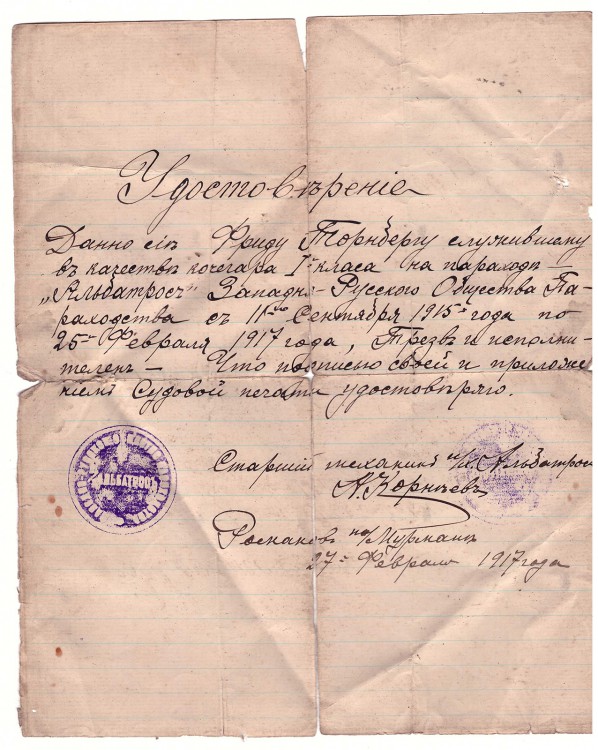 Удостовѣреніе
Данно сіе Фриду Торнбергу служившему
въ качествѣ кочегара I класа на параходѣ –
„Альбатросъ“ Западно-Русского Общества Па-
раходства съ 11го Сентября 1915 года по
25– Февраля 1917 года, Трезвъ и исполни-
теленъ – Что подписью своей и приложе-
ніемъ Судовой печати удостовѣряю.
АЛЬБАТРОСЪ
Старшій механикъ п/х. Альбатросъ
А. Корнѣевъ
на Мурманѣ
27– Февраля 1917 года